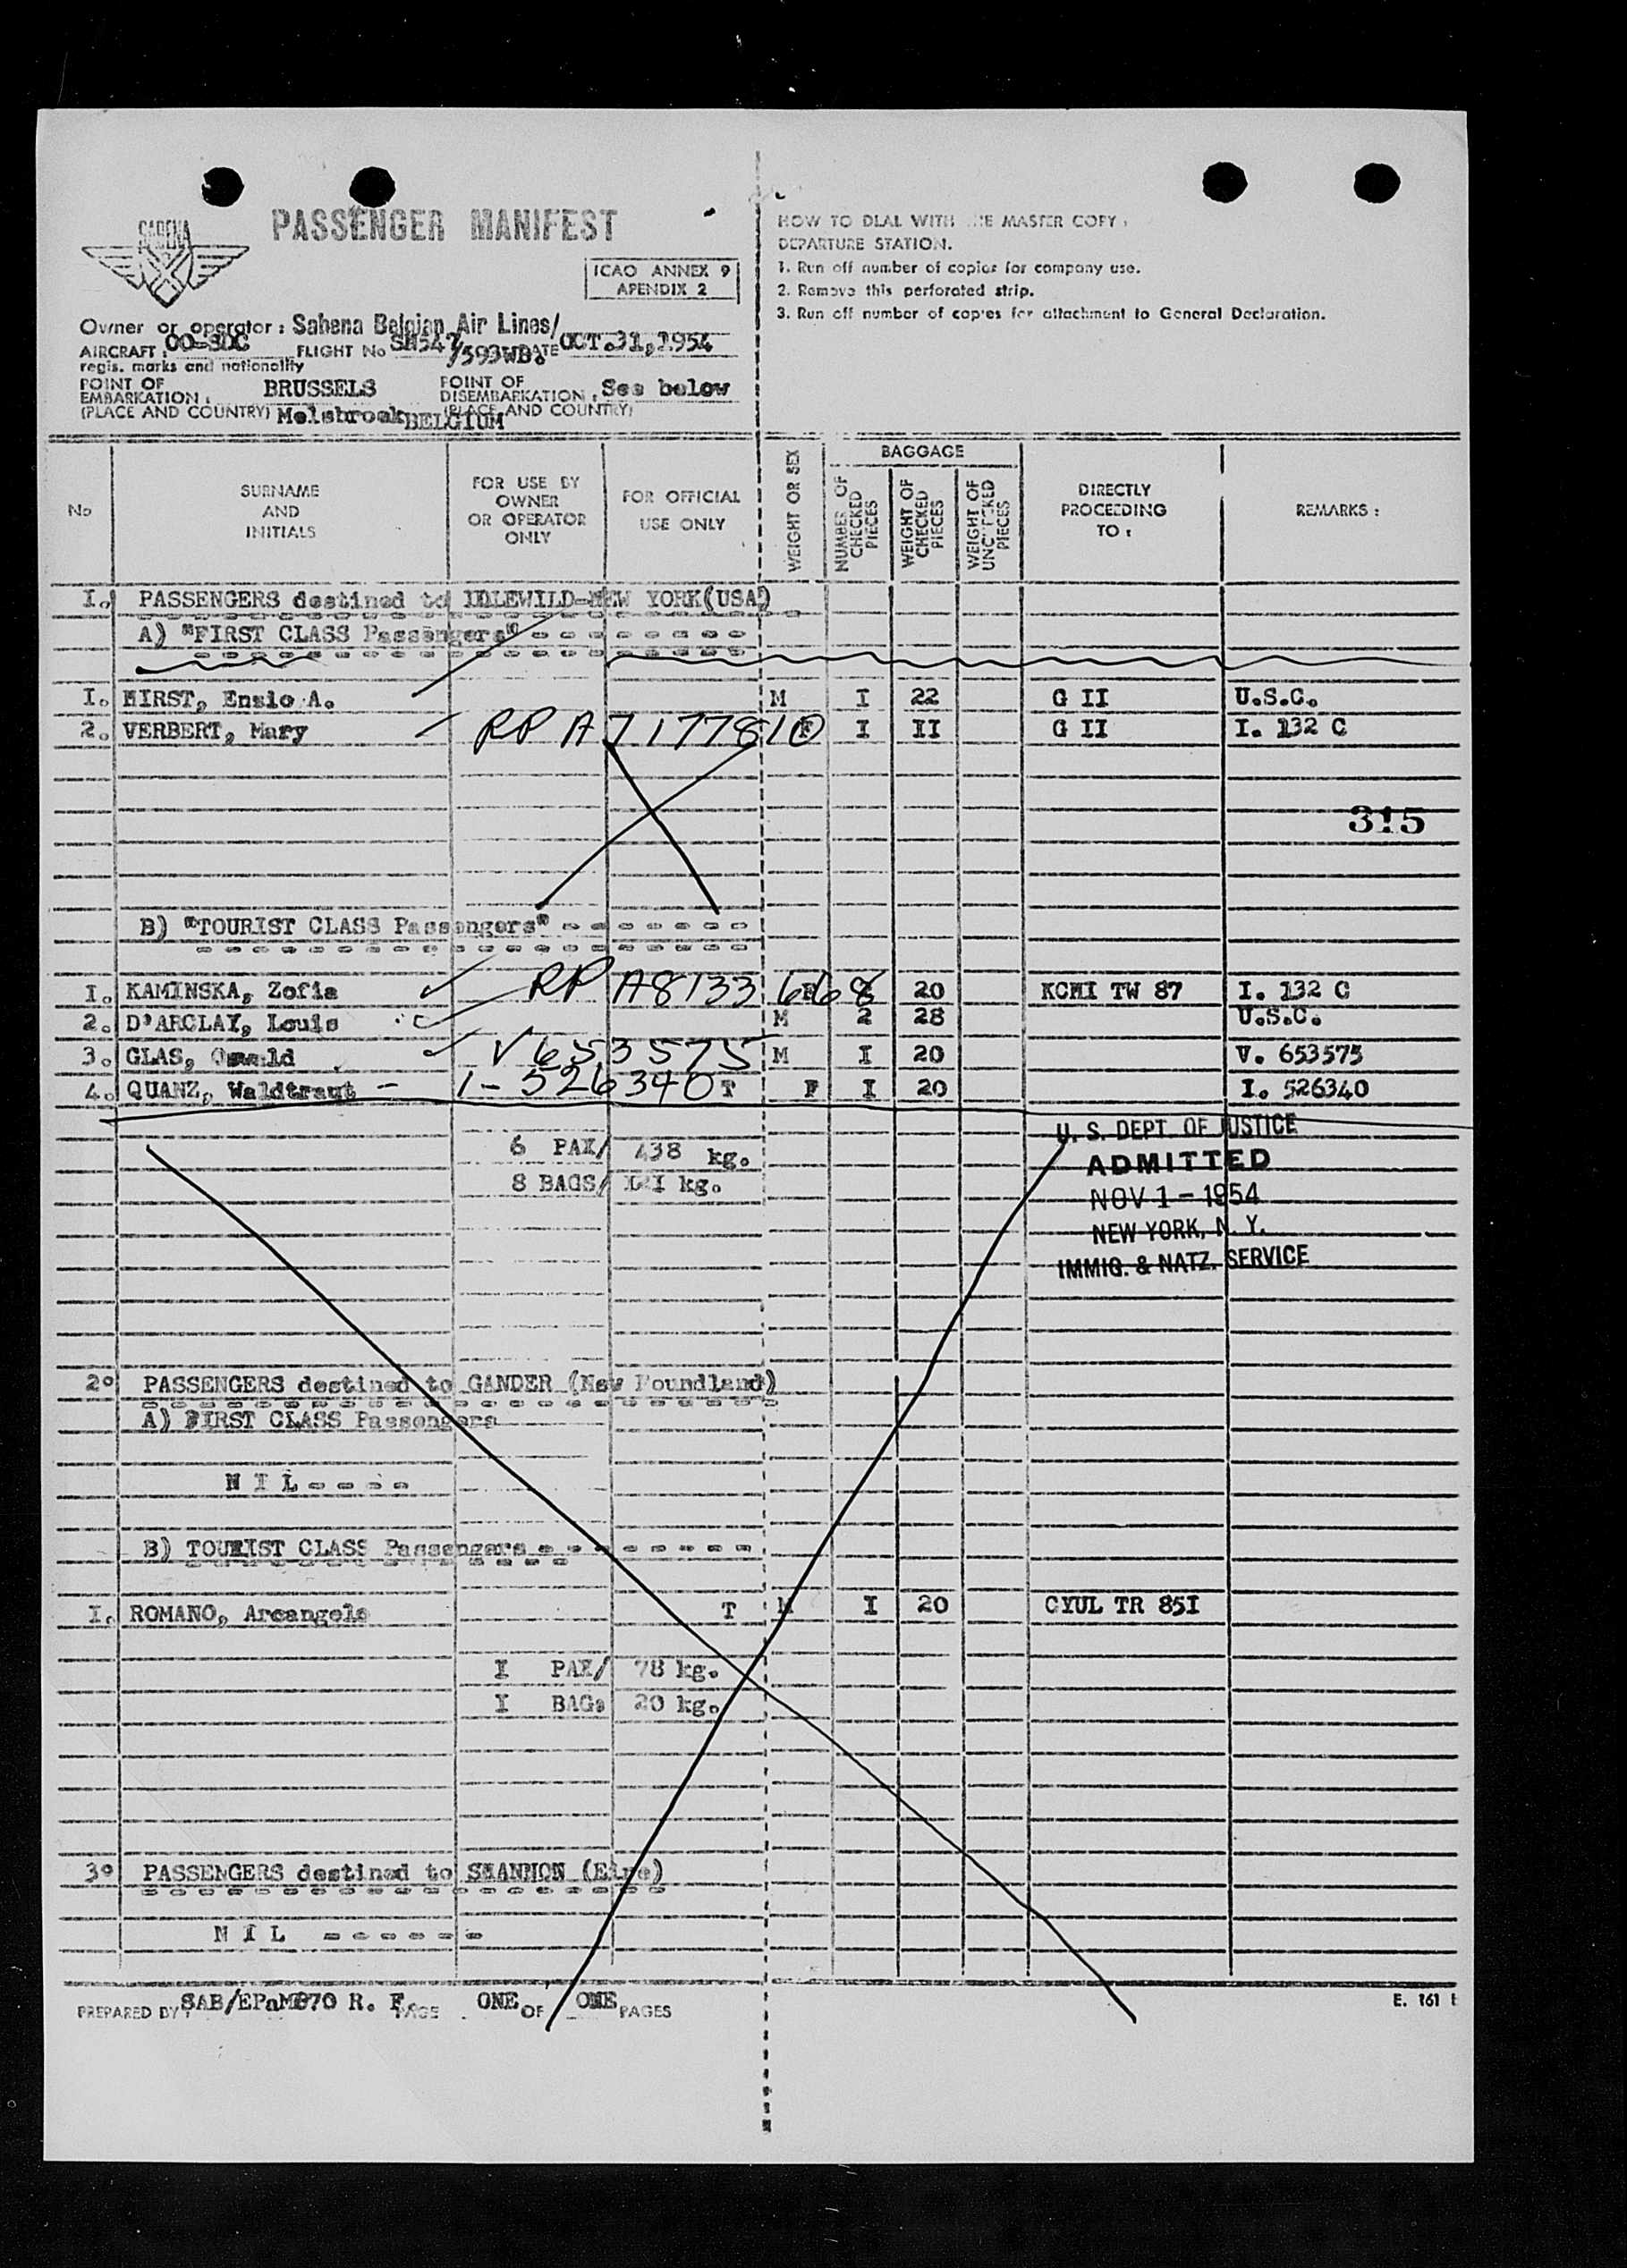 SABENA
PASSENGER MANIFEST
ICAO ANNEX 9
APENDIX 2
HOW TO DEAL WITH THE MASTER COPY :
DEPARTURE STATION.
1. Run off number of copies for company use.
2. Remove this perforated strip.
3. Run off number of copies for attachment to General Declaration.
Owner or operator : Sabena Belgian Air Lines/
AIRCRAFT : OO-SDC FLIGHT No SN547/593WB. DATE OCT.31,1954
regis. marks and nationality
POINT OF EMBARKATION : BRUSSELS POINT OF DISEMBARKATION : See below
(PLACE AND COUNTRY) Melsbroek BELGIUM (PLACE AND COUNTRY)
No SURNAME AND INITIALS FOR USE BY OWNER OR OPERATOR ONLY FOR OFFICIAL USE ONLY WEIGHT OR SEX BAGGAGE NUMBER OF CHECKED PIECES WEIGHT OF CHECKED PIECES WEIGHT OF UNCHECKED PIECES DIRECTLY PROCEEDING TO : REMARKS :
I. PASSENGERS destined to IDLEWILD-NEW YORK(USA)
A) "FIRST CLASS Passengers" - - - - - - - -
I. HIRST, Ensio A. M I 22 G II U.S.C.
2. VERBERT, Mary RP A7177810 F I II G II I. 132 C
315
B) "TOURIST CLASS Passengers" - - - - - - -
I. KAMINSKA, Zofia RP A8133 668 20 KCHI TW 87 I. 132 C
2. D'ARCLAY, Louis M 2 28 U.S.C.
3. GLAS, Oswald V653575 M I 20 V. 653575
4. QUANZ, Waldtraut - 1-526340 T F I 20 I. 526340
6 PAX/ 438 kg.
8 BAGS/ I2I kg.
U. S. DEPT. OF JUSTICE
ADMITTED
NOV 1 - 1954
NEW YORK, N. Y.
IMMIG. & NATZ. SERVICE
2° PASSENGERS destined to GANDER (New Foundland)
A) FIRST CLASS Passengers
N I L - - - -
B) TOURIST CLASS Passengers - - - - - - - -
I. ROMANO, Arcangelo T M I 20 CYUL TR 85I
I PAX/ 78 kg.
I BAG. 20 kg.
3° PASSENGERS destined to SHANNON (Eire)
N I L - - - - - -
PREPARED BY : SAB/EPaM870 R. F. PAGE ONE OF ONE PAGES
E. 161